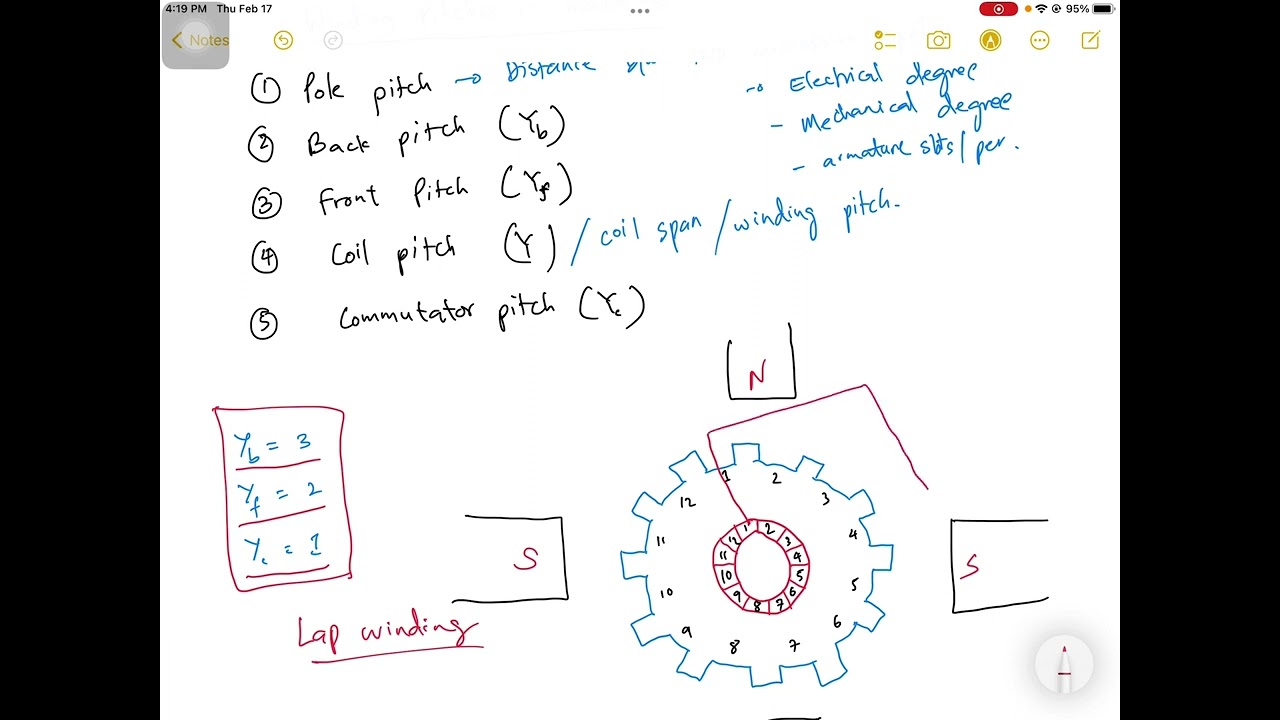 4:19 PM Thu Feb 17
95%
Notes
① Pole pitch → Distance
→ Electrical degree
- Mechanical degree
- armature slots / per.
② Back pitch (Yb)
③ Front Pitch (Yf)
④ Coil pitch (Y) / coil span / winding pitch.
⑤ Commutator pitch (Yc)
N
Yb = 3
Yf = 2
Yc = 1
Lap winding
S
S
1 2 3 4 5 6 7 8 9 10 11 12
1 2 3 4 5 6 7 8 9 10 11 12